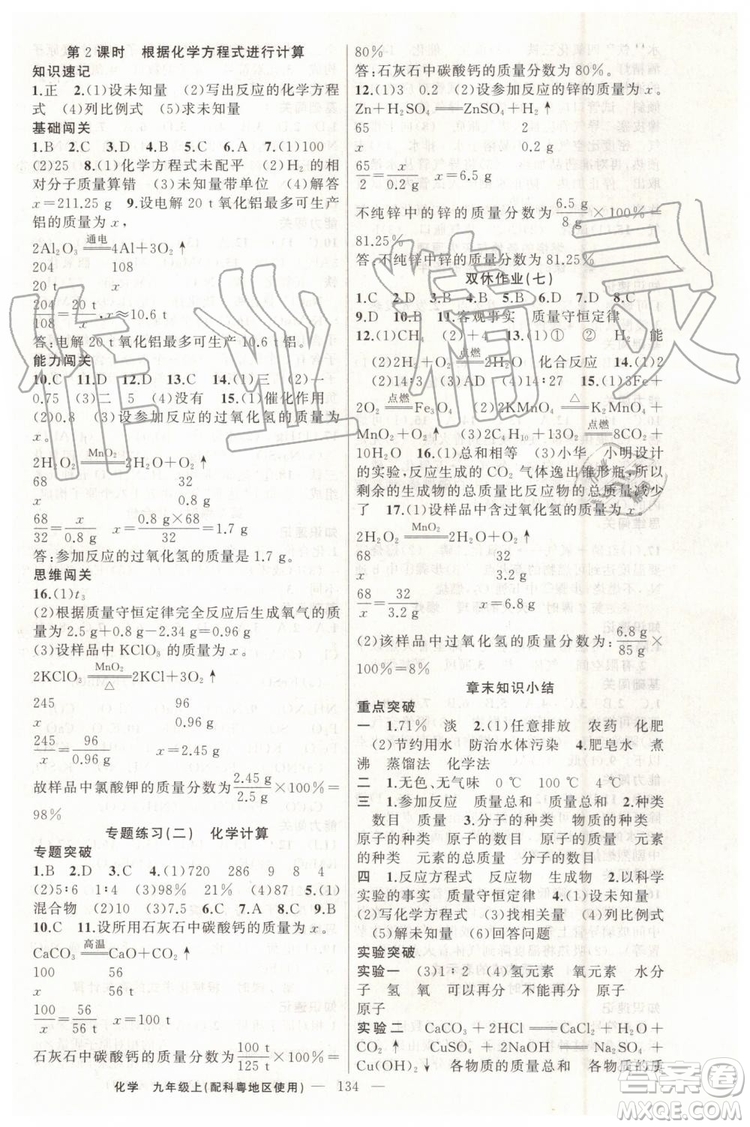 第2课时　根据化学方程式进行计算
知识速记
1.正　2.(1)设未知量　(2)写出反应的化学方程
式　(4)列比例式　(5)求未知量
基础闯关
1.B　2.C　3.D　4.B　5.B　6.C　7.(1)100
(2)25　8.(1)化学方程式未配平　(2)H₂的相
对分子质量算错　(3)未知量带单位　(4)解答
x=211.25　9.设电解20 t氧化铝最多可生产
铝的质量为x。
2Al₂O₃ 通电 4Al+3O₂↑
204　108
20 t　x
204/108=20 t/x　x≈10.6 t
答:电解20 t氧化铝最多可生产10.6 t铝。
能力闯关
10.C　11.D　12.D　13.C　14.(1)—
0.75　(3)二　5　15.(1)催化作用
(2)0.8　(3)设参加反应的过氧化氢的质量为
x。
2H₂O₂ MnO₂ 2H₂O+O₂↑
68　32
x　0.8 g
68/32=x/0.8 g　x=0.8 g×68/32=1.7 g
答:参加反应的过氧化氢的质量是1.7 g。
思维闯关
16.(1)t₃
(2)根据质量守恒定律完全反应后生成氧气的质量为
2.5 g+0.8 g−2.34 g=0.96 g
(3)设样品中KClO₃的质量为x。
2KClO₃ MnO₂ △ 2KCl+3O₂↑
245　96
x　0.96 g
245/x=96/0.96 g　x=2.45 g
故样品中氯酸钾的质量分数为2.45 g/2.5 g×100%=
98%
专题练习(二)　化学计算
专题突破
1.B　2.D　3.C　4.(1)720　286　9　8　4
(2)5∶6　1∶4　(3)92　5.(1)
混合物　(2)10　7.5　6.B　7.D　8.C　9.B
10.C　11.设所用石灰石中碳酸钙的质量为x。
CaCO₃ 高温 CaO+CO₂↑
100　56
x　56 t
100/x=56/56 t　x=100 t
石灰石中碳酸钙的质量分数为100 t/125 t×100%=
80%
答:石灰石中碳酸钙的质量分数为80%。
12.(1)3　0.2　(2)设参加反应的锌的质量为x。
Zn+H₂SO₄═ZnSO₄+H₂↑
65　2
x　0.2 g
65/x=2/0.2 g　x=6.5 g
不纯锌中的锌的质量分数为6.5 g/8 g×100%=
81.25%
答:不纯锌中锌的质量分数为81.25%
双休作业(七)
1.C　2.D　3.B　4.B　5.C　6.C　7.A　8.C
9.D　10.B　11.客观事实　质量守恒定律
12.(1)CH₄　(2)C₄H₈　13.(1)①　②　H₂　能
(2)2H₂+O₂ 点燃 2H₂O　化合反应　14.(1)2
(2)14∶3　(3)2　(4)14∶27　15.(1)3Fe+
2O₂ 点燃 Fe₃O₄　(2)2KMnO₄ △ K₂MnO₄+
MnO₂+O₂↑　(3)2C₄H₁₀+13O₂ 点燃 8CO₂+
10H₂O　16.(1)总和相等　(3)小华　小明设计
的实验,反应生成的CO₂气体逸出锥形瓶,所以
剩余的生成物的总质量比反应物的总质量减少
了　17.(1)设样品中含过氧化氢的质量为x。
2H₂O₂ MnO₂ 2H₂O+O₂↑
68　32
x　3.2 g
68/x=32/3.2 g　x=6.8 g
(2)该样品中过氧化氢的质量分数为:6.8 g/85 g×
100%=8%
章末知识小结
重点突破
一　1.71%　淡　2.(1)任意排放　农药　化肥
(2)节约用水　防治水体污染　4.肥皂水　煮
沸　蒸馏法　化学法
二　1.无色、无气味　0℃　100℃　4℃
三　1.参加反应　质量总和　质量总和　2.种类
数目　质量　3.原子的种类　原子的数目
原子的种类　原子的数目　原子的质量　元素
的种类　元素的总质量　分子的数目
四　1.反应方程式　反应物　生成物　2.以科学
实验的事实　质量守恒定律　3.(1)设未知量
(2)写化学方程式　(3)找相关量　(4)列比例式
(5)解未知量　(6)回答问题
实验突破
实验一　(3)1∶2　(4)氢元素　氧元素　水分
子　氢　氧　可以再分　不能再分　分子　原子
原子
实验二　CaCO₃+2HCl═CaCl₂+H₂O+
CO₂↑　CuSO₄+2NaOH═Na₂SO₄+
Cu(OH)₂↓　反应前后质量相等　等于
化学　九年级上(配科粤地区使用)　— 134 —
作业精灵
答案圈